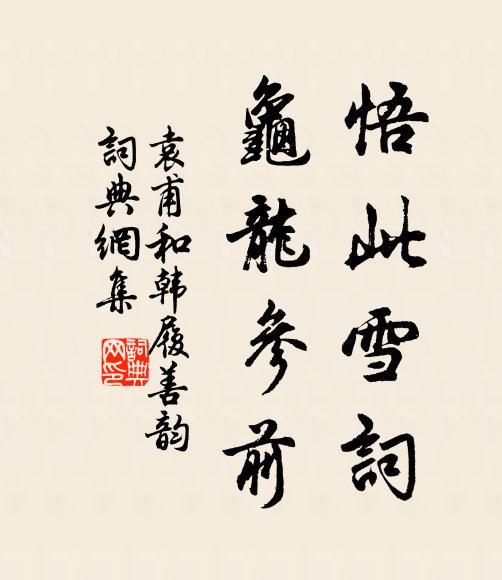 悟此雪詞
龜龍參前
袁甫和韓履善韵
詞典網集
詞典網印